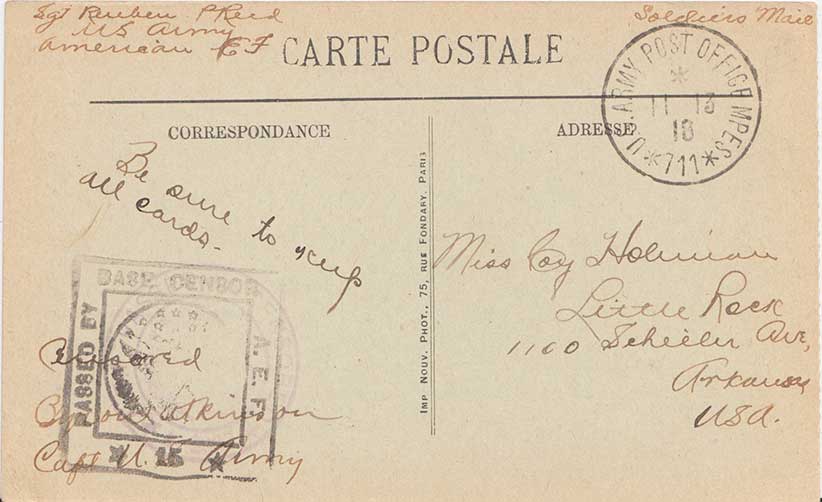 Sgt Reuben P Reed
US Army
American E F
Soldiers Mail
CARTE POSTALE
U.S. ARMY POST OFFICE MPES
*
11 13
18
*711*
CORRESPONDANCE
ADRESSE
Be sure to keep
all cards.
IMP NOUV. PHOT., 75, RUE FONDARY, PARIS
Miss Coy Holman
Little Rock
1100 Scheiler Ave,
Arkansas
USA.
PASSED BY
BASE CENSOR
A.E.F.
* 15 *
Censored
Atkinson
Capt U.S. Army